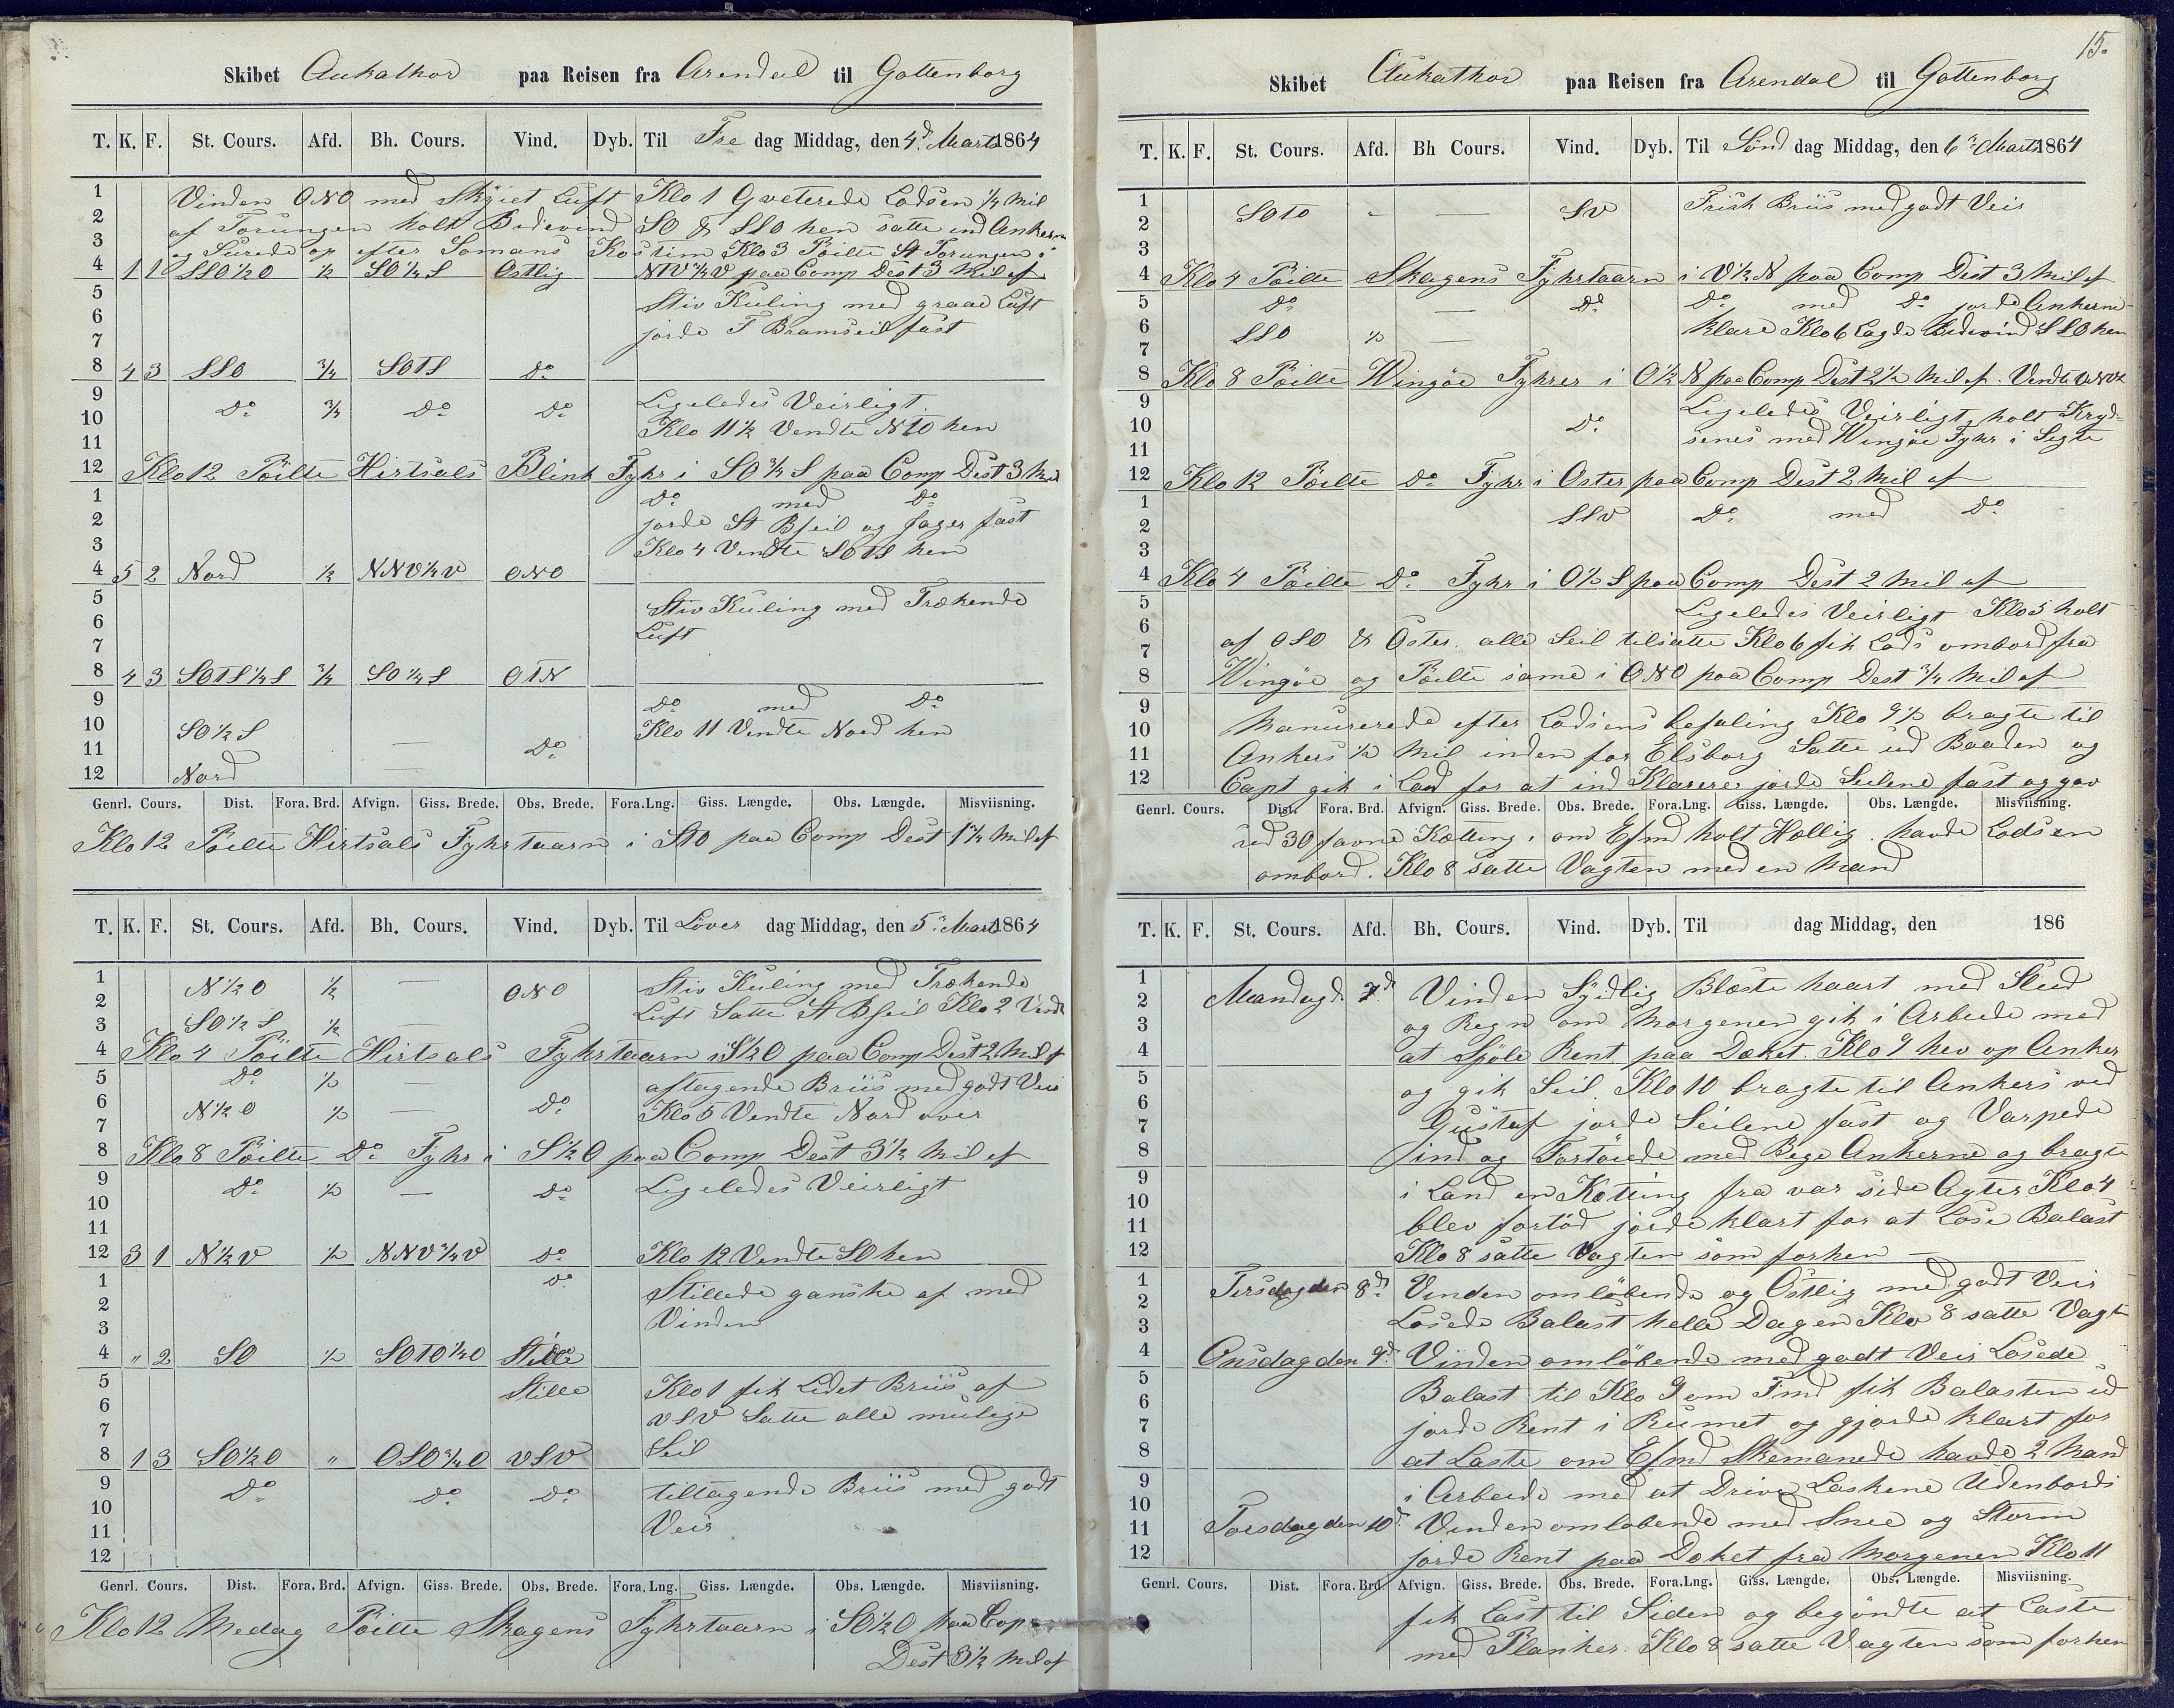 Skibet Aukathor paa Reisen fra Arendal til Gottenborg
T. K. F. St. Cours. Afd. Bh. Cours. Vind. Dyb. Til Fre dag Middag, den 4d Marts 1864
1 Vinden ONO med Skyiet Luft Klo 1 Qveterede Lodsen 1/4 Mil
2 af Torungen holt Bidevind SO & SSO hen satte ind Ankerne
3 og Surede op efter Somans Kostim Klo 3 Pöilte St Torungen i
4 1 1 SSO 1/2 O 1/2 SO 1/4 S Ostlig NTV 1/4 V paa Comp Dest 3 Mil af
5 Stiv Kuling med graad Luft
6
7 jorde F Bramseil fast
8 4 3 SSO 3/4 SOTS Do
9 Do 3/4 Do Do Ligeledes Veirligt
10 Klo 11 1/2 Vendte NTO hen
11
12 Klo 12 Pöilte Hirtsals Blink Fyhr i SO 3/4 S paa Comp Dest 3 Mil
1 Do med Do
2 jorde St Bseil og Jager fast
3 Klo 4 Vendte SOTS hen
4 5 2 Nord 1/2 NNV 1/4 V ONO
5 Stiv Kuling med Trækende
6 Luft
7
8 4 3 SOTS 1/4 S 3/4 SO 1/4 S OTN
9 Do med Do
10 SO 1/2 S — Do Klo 11 Vendte Nord hen
11
12 Nord —
Genrl. Cours. Dist. Fora. Brd. Afvign. Giss. Brede. Obs. Brede. Fora. Lng. Giss. Længde. Obs. Længde. Misviisning.
Klo 12 Pöilte Hirtsals Fyhrtaarn i StO paa Comp Dest 1 1/4 Mil af
T. K. F. St. Cours. Afd. Bh. Cours. Vind. Dyb. Til Löver dag Middag, den 5d Marts 1864
1 N 1/2 O 1/2 — ONO Stiv Kuling med Trækende
2 Luft Satte St Bseil Klo 2 Vendt
3 SO 1/2 S 1/2 —
4 Klo 4 Pöilte Hirtsals Fyhrtaarn i S 1/2 O paa Comp Dest 2 Mil af
5 Do 1/2 — aftagende Briis med godt Veir
6 N 1/2 O 1/2 — Do Klo 5 Vendte Nord over
7
8 Klo 8 Pöilte Do Fyhr i S 1/2 O paa Comp Dest 3 1/2 Mil af
9 Do 1/2 — Do Ligeledes Veirligt
10
11
12 3 1 N 1/2 V 1/2 NNV 3/4 V Do Klo 12 Vendte SO hen
1 Do Stillede ganske af med
2 Vinden
3
4 " 2 SO 1/2 SOTO 1/4 O Stille
5 Stille Klo 1 fik Lidet Briis af
6 VSV Satte alle mulige
7
8 1 3 SO 1/2 O " OSO 3/4 O VSV Seil
9 Do Do Do tiltagende Briis med godt
10 Veir
11
12
Genrl. Cours. Dist. Fora. Brd. Afvign. Giss. Brede. Obs. Brede. Fora. Lng. Giss. Længde. Obs. Længde. Misviisning.
Klo 12 Medag Pöilte Skagens Fyhrtaarn i SO 1/2 O paa Cop
Dest 3 1/2 Mil af
15.
Skibet Aukathor paa Reisen fra Arendal til Gottenborg
T. K. F. St. Cours. Afd. Bh Cours. Vind. Dyb. Til Sönd dag Middag, den 6d Marts 1864
1 SOTO " — SV Frisk Briis med godt Veir
2
3
4 Klo 4 Pöilte Skagens Fyhrtaarn i V 1/2 N paa Comp Dest 3 Mil af
5 Do — Do Do med Do jorde Ankerne
6 SSO 1/2 — klare Klo 6 Lagde Bidevind SSO hen
7
8 Klo 8 Pöilte Wingöe Fyhrer i O 1/2 N paa Comp Dest 2 1/2 Mil af. Vendte
9 Ligeledes Veirligt holt Kryd-
10 Do senes med Wingöe Fyhr i Sigte
11
12 Klo 12 Pöilte Do Fyhr i Oster paa Comp Dest 2 Mil af
1 SSV Do med Do
2
3
4 Klo 4 Pöilte Do Fyhr i O 1/2 S paa Comp Dest 2 Mil af
5 Ligeledes Veirligt Klo 5 holt
6 af OSO & Öster. alle Seil tilsatte Klo 6 fik Lods ombord fra
7
8 Wingöe og Pöilte same i ONO paa Comp Dest 3/4 Mil af
9 Manurerede efter Lodsens befaling Klo 9 1/2 bragte til
10
11 Ankers 1/2 Mil inden for Elsborg Satte ud Baaden og
12 Capt gik i Land for at ind Klarere jorde Seilene fast og gav
Genrl. Cours. Dist. Fora. Brd. Afvign. Giss. Brede. Obs. Brede. Fora. Lng. Giss. Længde. Obs. Længde. Misviisning.
ud 30 favne Kætting. om Efmd holt Hællig. havde Lodsen
ombord. Klo 8 satte Vagten med en Mand
T. K. F. St. Cours. Afd. Bh. Cours. Vind. Dyb. Til dag Middag, den 186
1 Mandag d. 7d Vinden Sydlig Blæste haart med Slud
2
3 og Regn om Morgenen gik i Arbeide med
4 at Spöle Rent paa Dæket. Klo 9 hev op Anker
5 og gik Seil. Klo 10 bragte til Ankers ved
6
7 Gustaf jorde Seilene fast og Varpede
8 ind og Fortöiede med Bege Ankerne og bragte
9 i Land en Kætting fra var side Agter Klo 4
10
11 blev fortöd jorde klart for at Lose Balast
12 Klo 8 satte Vagten som forhen —
1 Tirsdag den 8d Vinden omlöbende og Östlig med godt Veir
2
3 Losede Balast helle Dagen Klo 8 satte Vagt
4 Onsdag den 9d Vinden omlöbende med godt Veir Losede
5 Balast til Klo 9 om Fmd fik Balasten ud
6
7 jorde Rent i Rumet og gjorde klart for
8 at Laste om Efmd Skemanede havde 2 Mand
9 i Arbeide med at Drive Laskene Udenbords
10
11 Torsdag den 10d Vinden omlobende med Snee og Storm
12 jorde Rent paa Dæket fra Morgenen Klo 11
Genrl. Cours. Dist. Fora. Brd. Afvign. Giss. Brede. Obs. Brede. Fora. Lng. Giss. Længde. Obs. Længde. Misviisning.
fik Last til Siden og begöndte at Laste
med Planker. Klo 8 satte Vagten som forhen